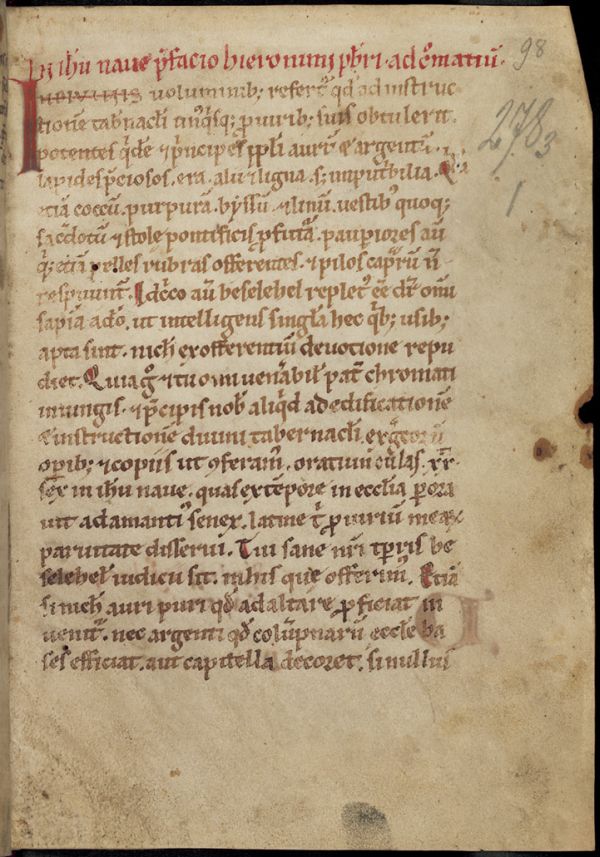 In ihu naue p̄facio hieronimi p̄bri . ad c̊matiū .
In diuinis uoluminib; refert̄ qd̄ ad instruc
tionē tab̄nacli un̄q̇sq; ꝓ uirib; suis obtulerit
potentes q̇dē ⁊ p̄ncipes ppli aurū ⁊ argentū .
lapides p̄ciosos . era . alii ⁊ ligna . s; imput̄bilia .
etiā coccū . purpurā . byssū . ⁊ linū . uestib; quoq;
sac̄dotū ⁊ stole pontificis ꝓfutā . pauꝑiores aū
q; etiā pelles rubras offerentes . ⁊ pilos cap̄rū n̄
respuunt̄ . Idcc̊o aū beselehel replet᷒ eē dr̄ om̄i
sapīa a dō . ut intelligens singl̄a hec q̇b; usib;
apta sint . nichil ex offerentiū deuotione repu
diet . Quia g̊ ⁊ tu om̄i uen̄abil̄ pat̄ chromati
iniungis . ⁊ p̄cipis nob̄ aliq̇d ad edificationē
⁊ instructionē diuini tabernacli . ex g̊corū
oꝑib; ⁊ copiis ut ꝯferam᷒ . oratiunculas . xx .
sex in ihu naue . quas ex tēpore in ecclia ꝑora
uit adamanti᷒ senex . latine t̄ ꝓ uiriū meaꝝ
paruitate disserui . Tui sane nr̄i tꝑris be
selehel iudicii sit . in his que offerim᷒ . Etiā
si nich̄ auri puri qd̄ ad altare ꝓficiat in
uenit̄ . nec argenti qd̄ colūpnarū ecclē ba
ses efficiat . aut capitella decoret . si nullus
98
278
3
1